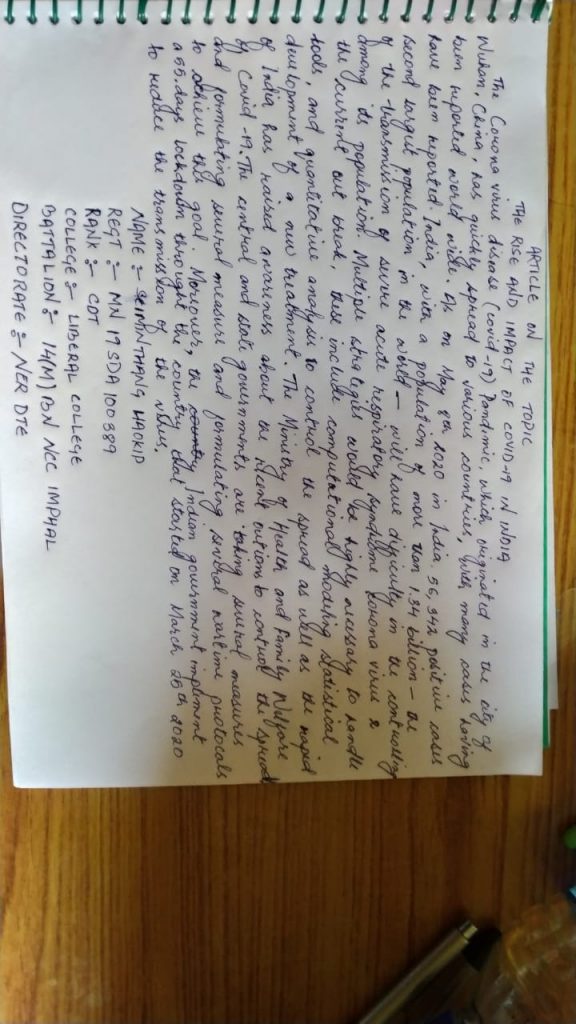 ARTICLE ON THE TOPIC
THE RISE AND IMPACT OF COVID-19 IN INDIA
The Corona virus disease (covid-19) Pandemic, which originated in the city of
Wuhan, China, has quickly spread to various countries, with many cases having
been reported world wide. As on May 8th, 2020 in India. 56,342 positive cases
have been reported. India, with a population of more than 1.34 billion - the
second largest population in the world - will have difficulty in the controlling
of the transmission of severe acute respiratory syndrome corona virus 2
among its population. Multiple strategies would be highly necessary to handle
the current out break, these include computational modeling statistical
tools, and quantitative analysis to control the spread as well as the rapid
development of a new treatment. The Ministry of Health and Family Welfare
of India has raised awareness about the recent outions to control the spread
of Covid-19. The central and state governments are taking several measures
and formulating several measure and formulating several wartime protocols
to achieve this goal. Moreover, the Indian government implement
a 55-days lockdown throught the country that started on March 25th 2020
to reduce the transmission of the virus.
NAME :- MINTHANG HAOKIP
REGT :- MN 19 SDA 100389
RANK :- CDT
COLLEGE :- LIBERAL COLLEGE
BATTALION :- 14(M) BN NCC IMPHAL
DIRECTORATE :- NER DTE